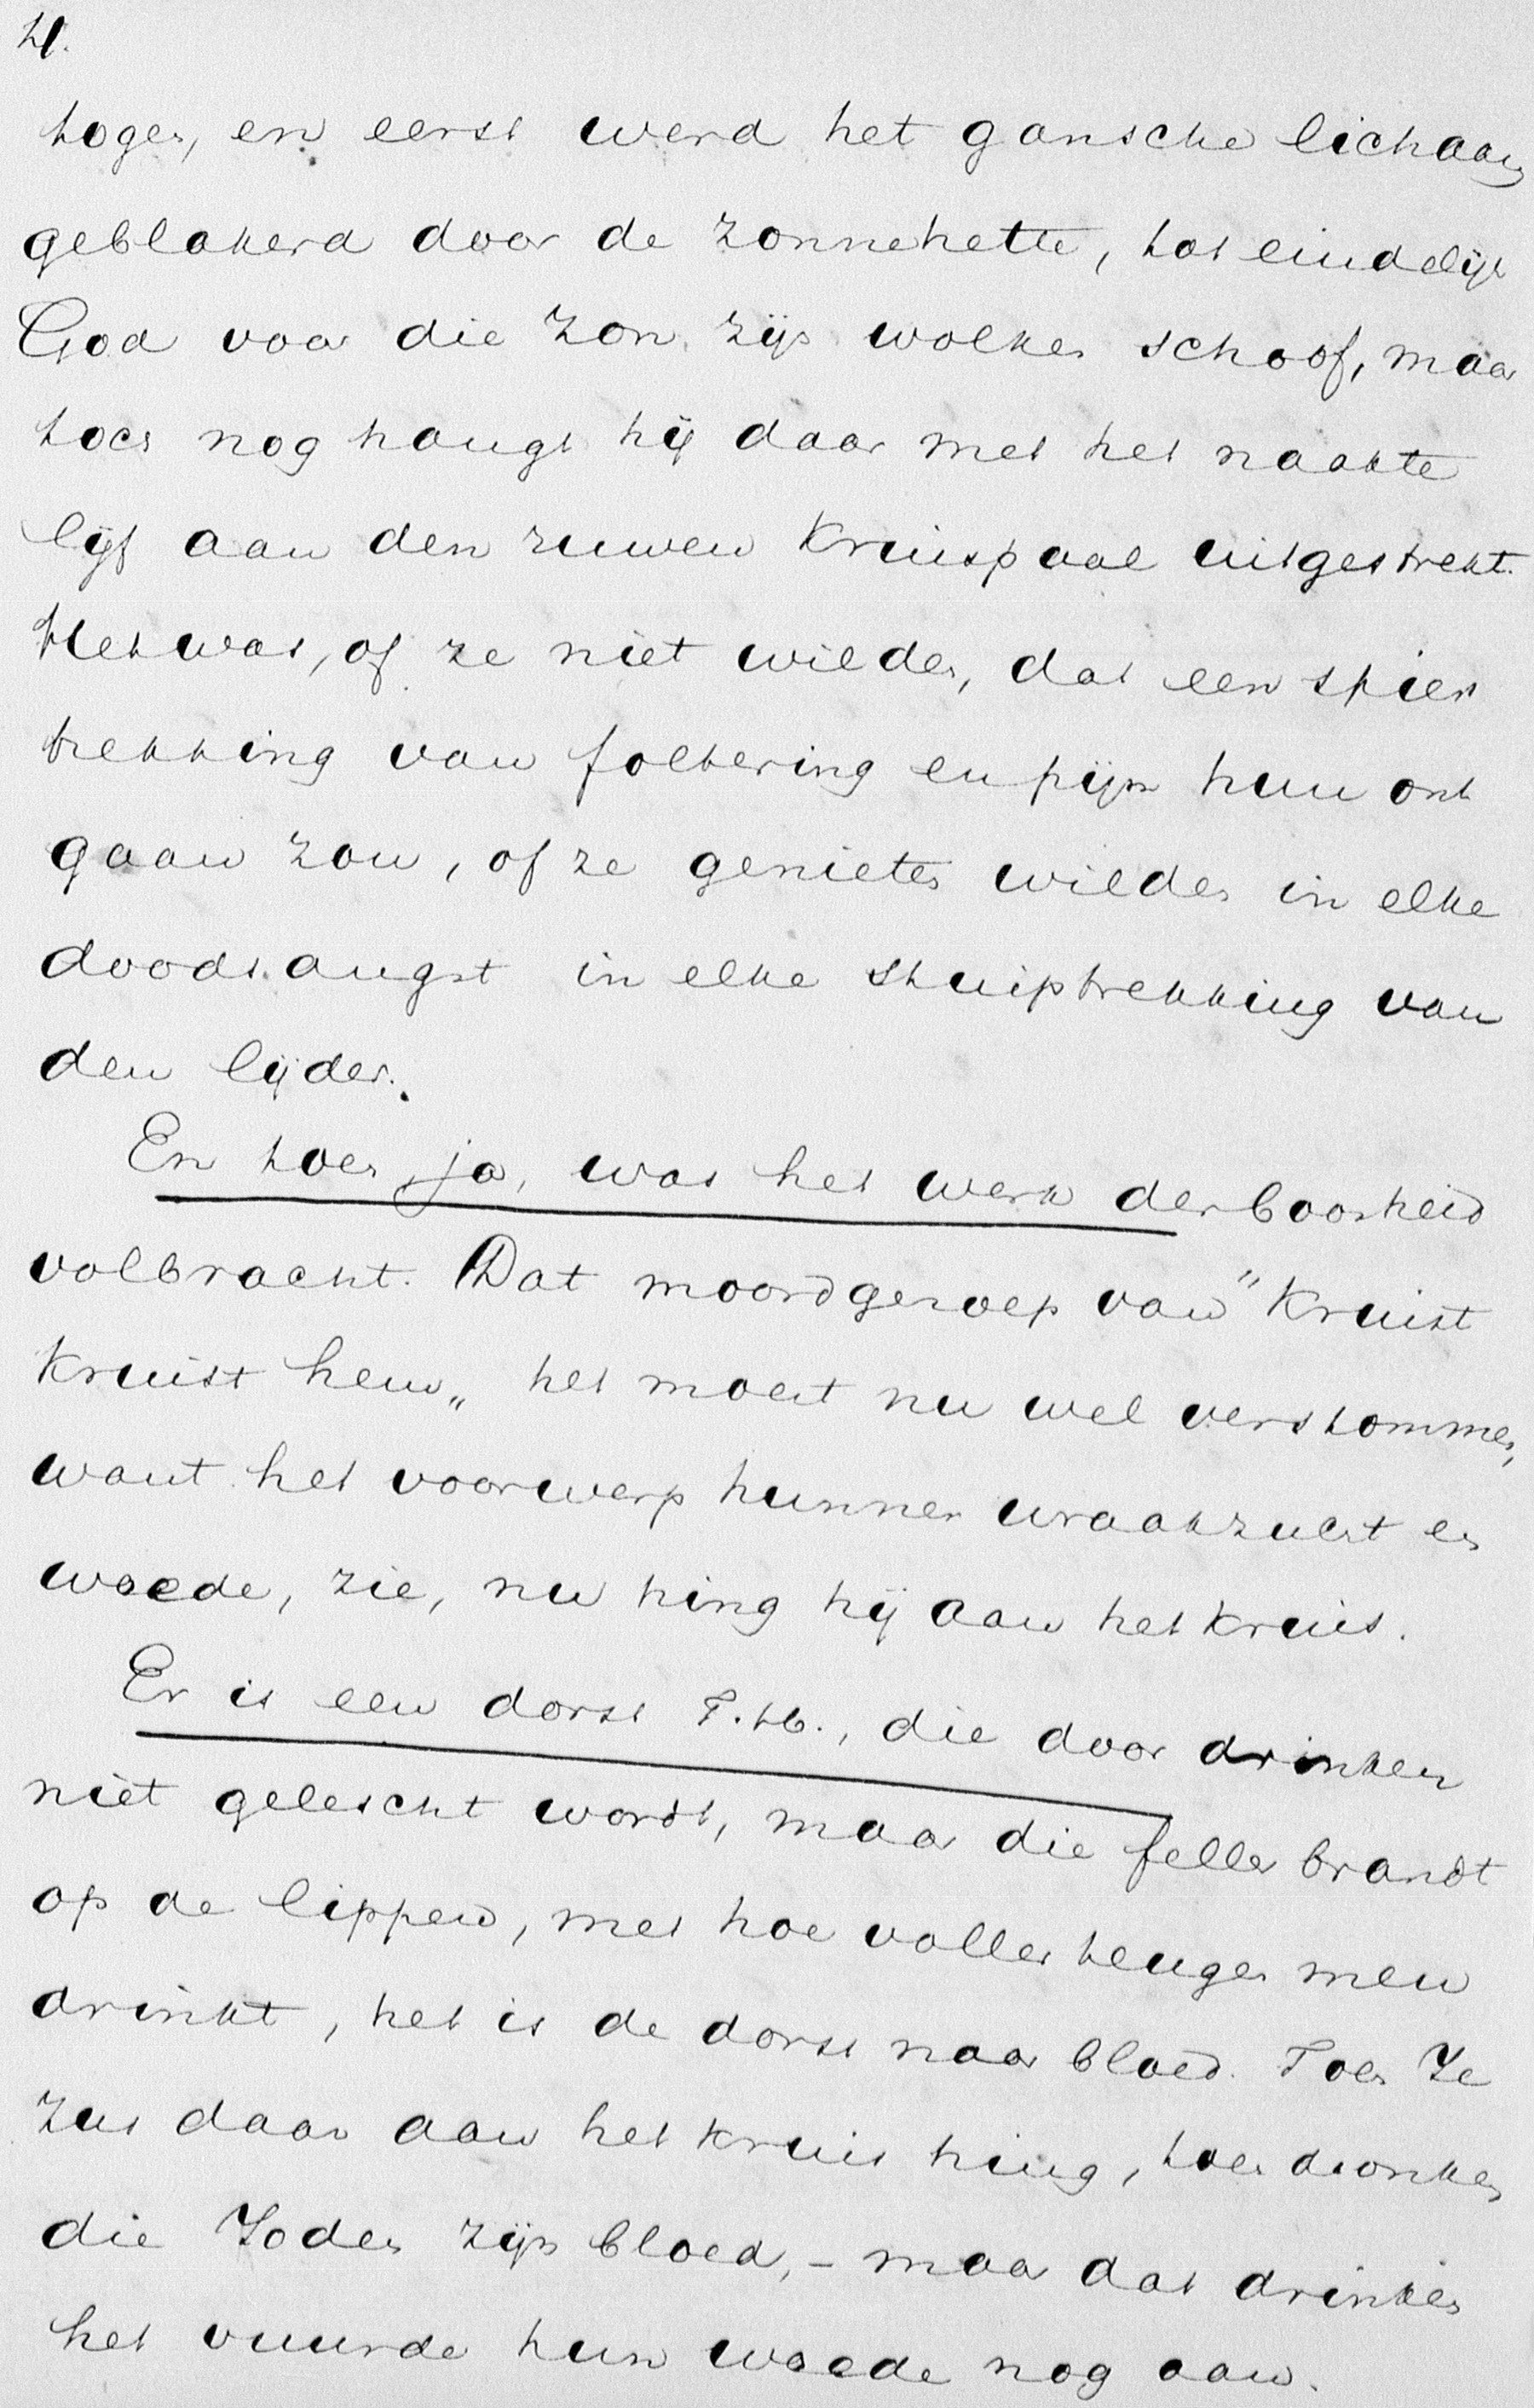 4.
togen, en eerst werd het gansche lichaam
geblakerd door de zonnehette, tot eindelijk
God voor die zon zijn wolken schoof, maar
toch nog hangt hij daar met het naakte
lijf aan den ruwen kruispaal uitgestrekt.
Het was, of ze niet wilden, dat een spier
trekking van foltering en pijn hun ont
gaan zou, of ze genieten wilden in elke
doodsangst in elke stuiptrekking van
den lijder.
En toen, ja, was het werk der boosheid
volbracht. Dat moordgeroep van "Kruist
Kruist hem„ het moest nu wel verstommen,
want het voorwerp hunner wraakzucht en
woede, zie, nu hing hij aan het kruis.
Er is een dorst T.H., die door drinken
niet gelescht wordt, maar die feller brandt
op de lippen, met hoe voller teugen men
drinkt, het is de dorst naar bloed. Toen Je
zus daar aan het kruis hing, toen dronken
die Joden zijn bloed, - maar dat drinken
het vuurde hun woede nog aan.